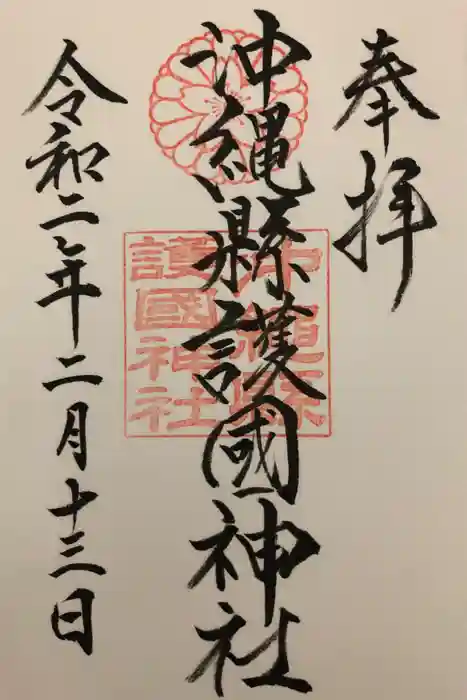 奉拝
沖縄縣護國神社
沖縄縣
護國神社
令和二年二月十三日